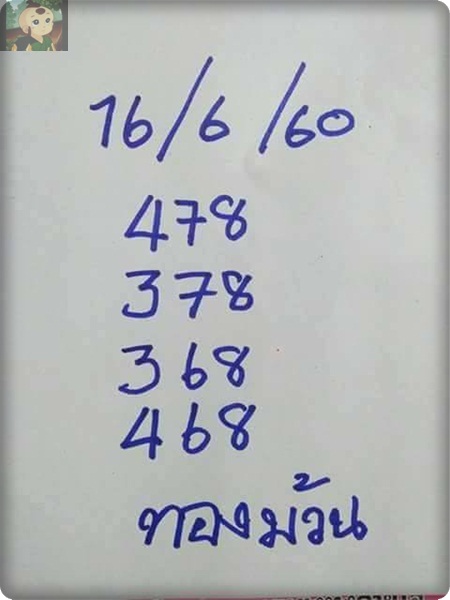 16/6/60
478
378
368
468
ทองม้วน